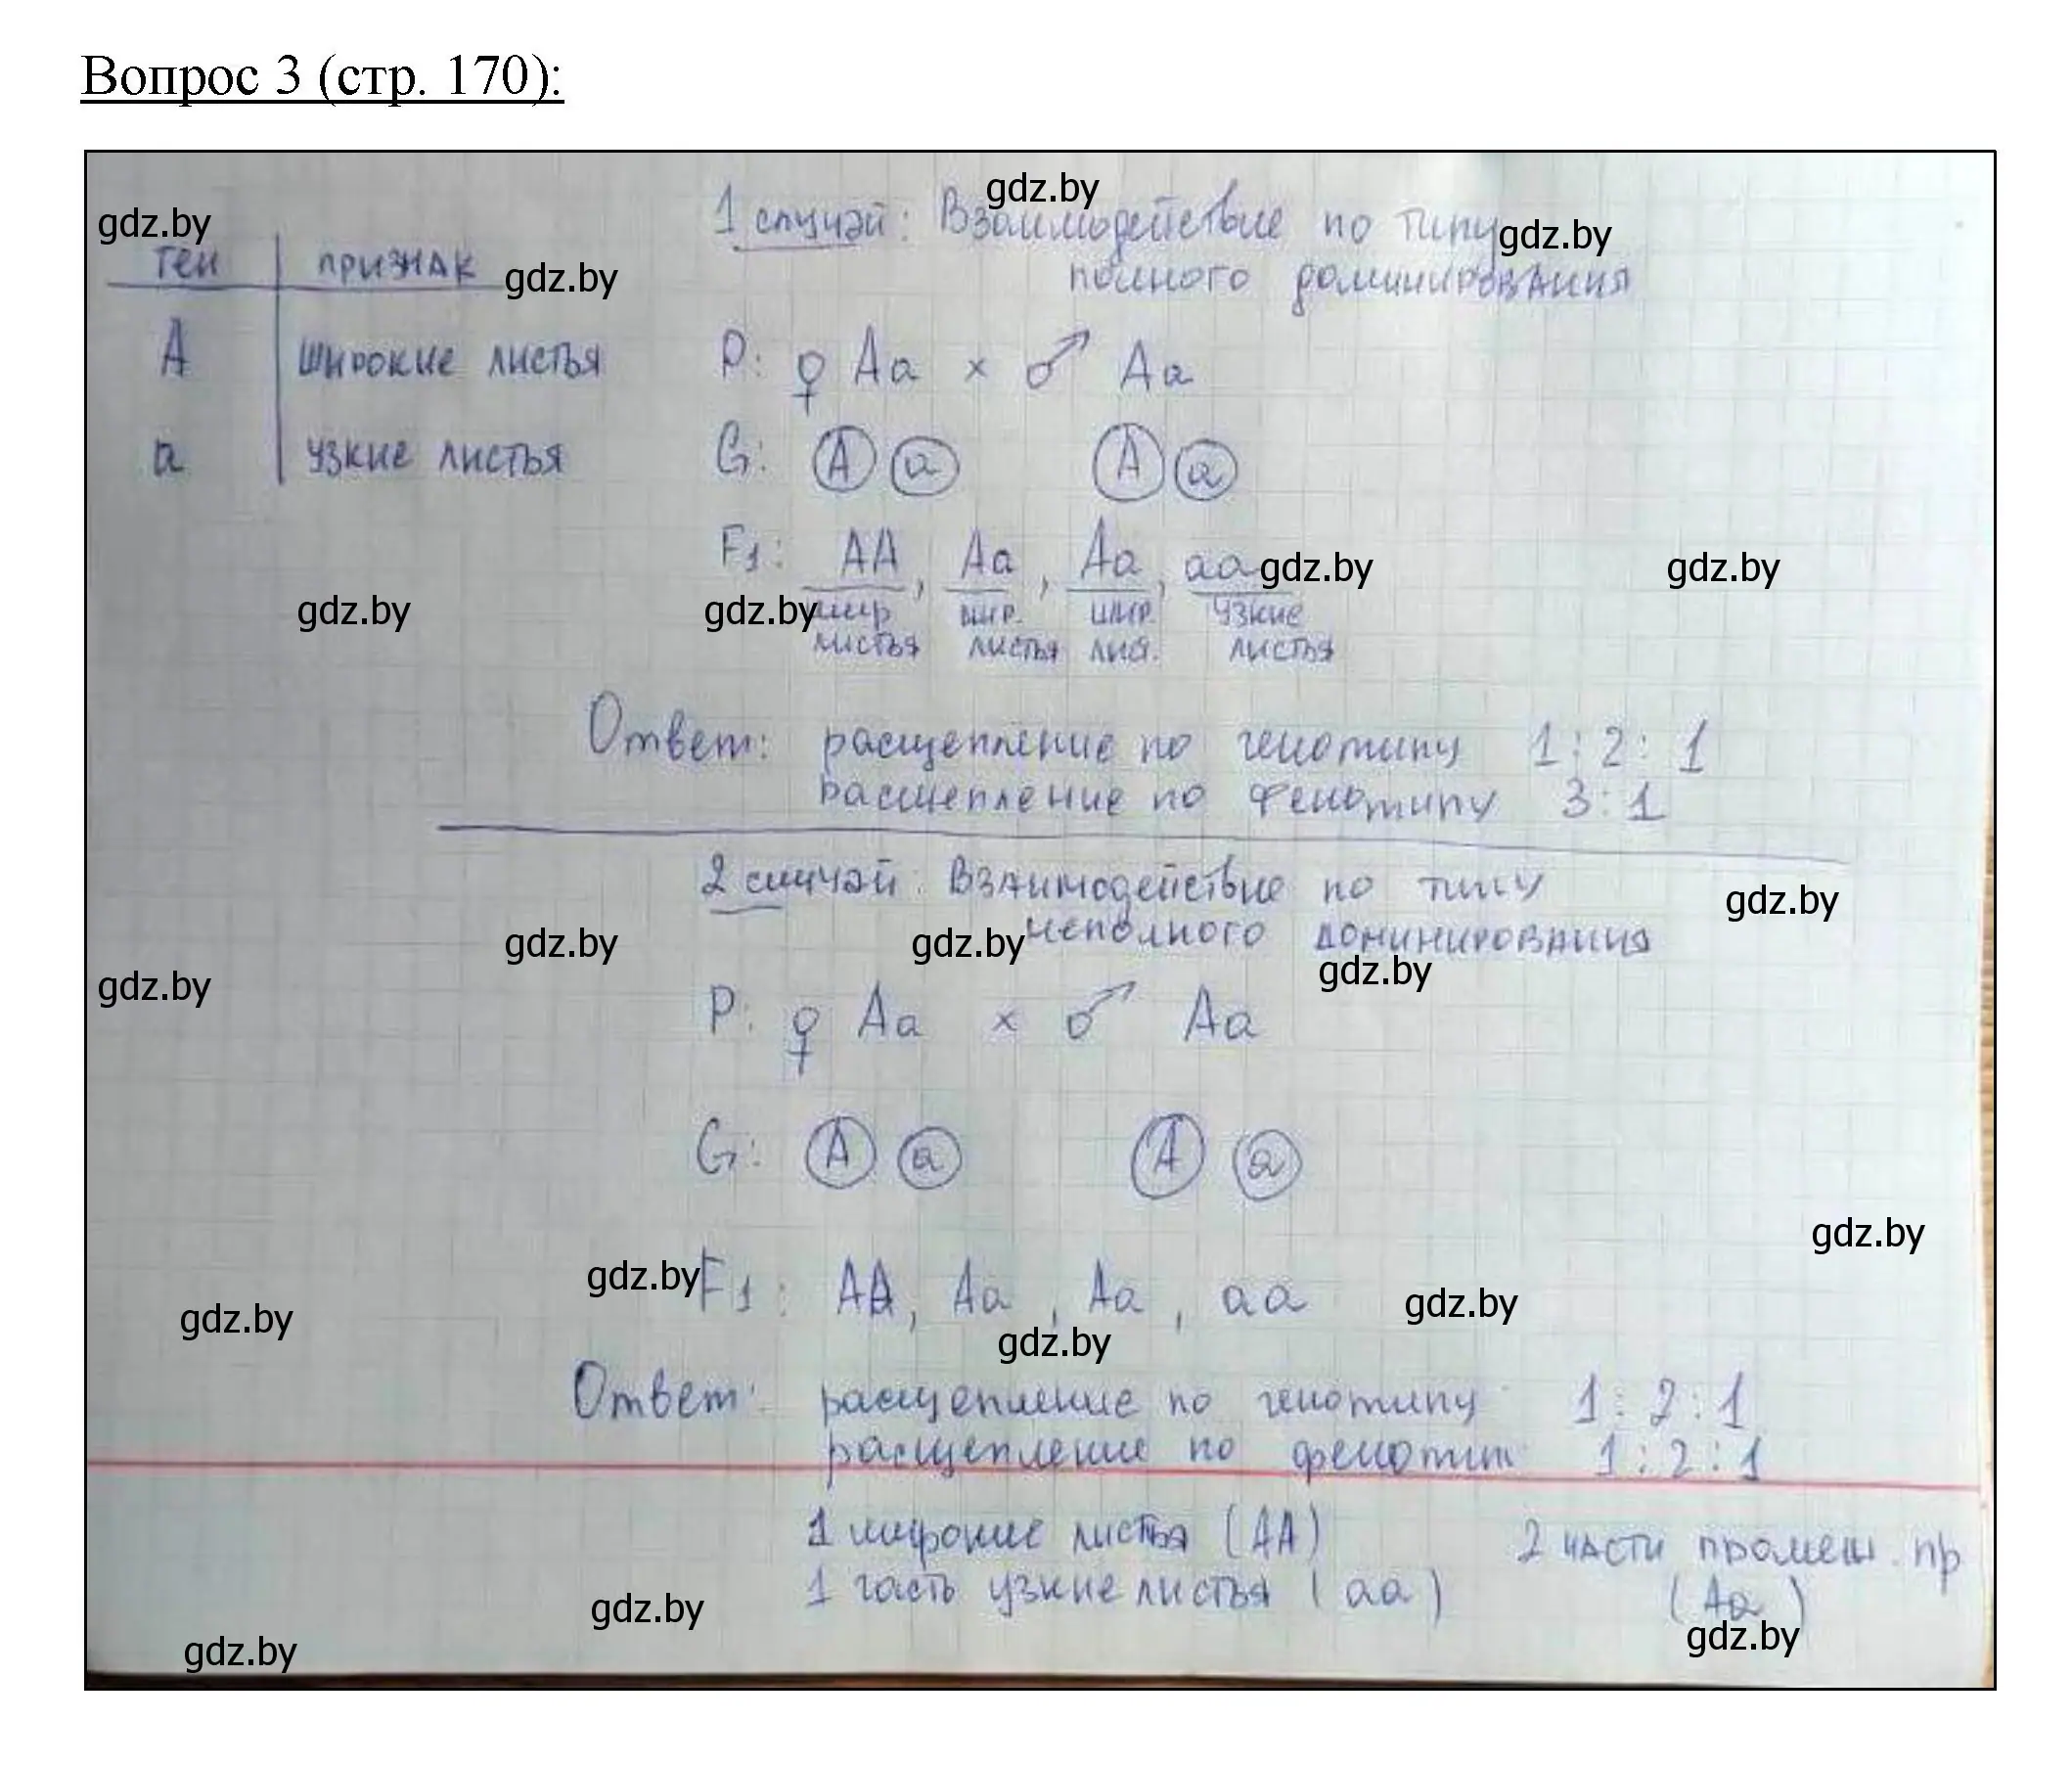 Вопрос 3 (стр. 170):
gdz.by
gdz.by
gdz.by
gdz.by
ген признак
А широкие листья
а узкие листья
1 случай: Взаимодействие по типу
полного доминирования
P: ♀ Aa × ♂ Aa
G: A a A a
F1: AA, Aa, Aa, aa
шир шир. шир. узкие
листья листья лист. листья
gdz.by
gdz.by
gdz.by
gdz.by
Ответ: расщепление по генотипу 1:2:1
расщепление по фенотипу 3:1
2 случай: Взаимодействие по типу
неполного доминирования
gdz.by
gdz.by
gdz.by
gdz.by
gdz.by
P: ♀ Aa × ♂ Aa
G: A a A a
gdz.by
F1: AA, Aa, Aa, aa
gdz.by
gdz.by
gdz.by
gdz.by
Ответ: расщепление по генотипу 1:2:1
расщепление по фенотип 1:2:1
1 широкие листья (AA) 2 части промеж. пр
1 часть узкие листья (aa) (Aa)
gdz.by
gdz.by
gdz.by